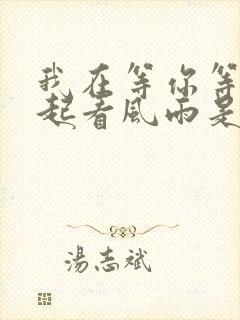 我在等你等
起看風雨是
湯志斌